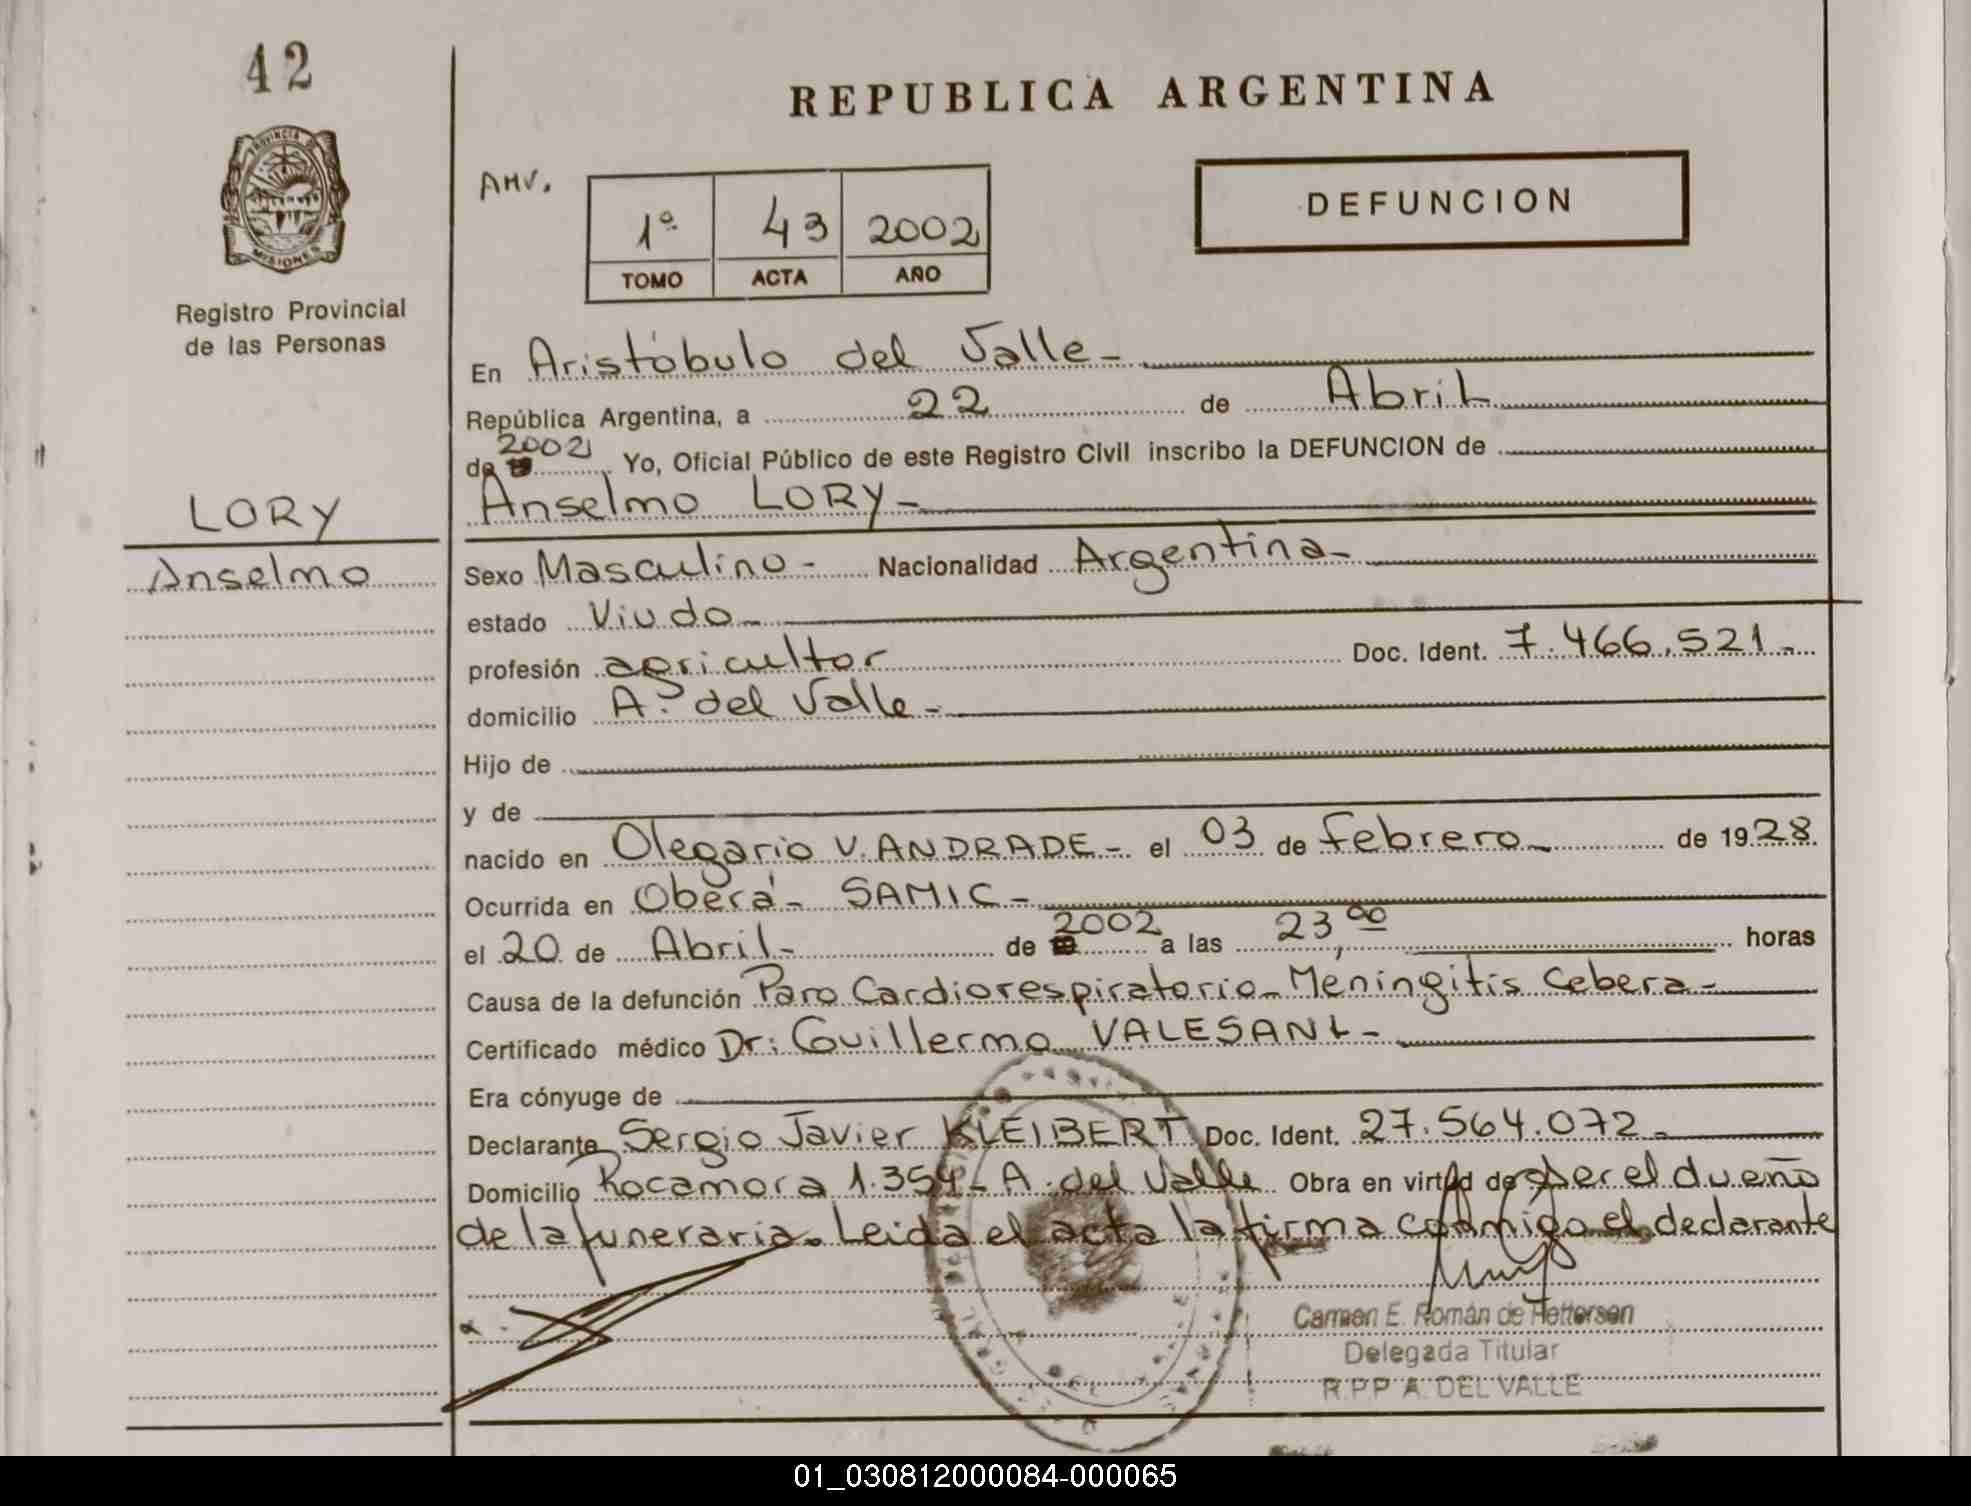 42
REPUBLICA ARGENTINA
PROVINCIA DE
MISIONES
Registro Provincial
de las Personas
AHV.
1º 43 2002
TOMO ACTA AÑO
DEFUNCION
En Aristóbulo del Valle-
República Argentina, a 22 de Abril
de 19 2002 Yo, Oficial Público de este Registro Civil inscribo la DEFUNCION de
LORY
Anselmo
Anselmo LORY-
Sexo Masculino- Nacionalidad Argentina-
estado Viudo-
profesión agricultor Doc. Ident. 7.466.521.-
domicilio A. del Valle-
Hijo de
y de
nacido en Olegario V. ANDRADE- el 03 de Febrero- de 1928.
Ocurrida en Oberá- SAMIC-
el 20 de Abril- de 19 2002 a las 23,00 horas
Causa de la defunción Paro Cardiorespiratorio- Meningitis Cebera-
Certificado médico Dr: Guillermo VALESANI-
Era cónyuge de
Declarante Sergio Javier KLEIBERT Doc. Ident. 27.564.072-
Domicilio Rocamora 1.354- A. del Valle Obra en virtud de ser el dueño
de la funeraria. Leida el acta la firma conmigo el declarante
Carmen E. Román de Pettersen
Delegada Titular
R.P.P A. DEL VALLE
01_030812000084-000065